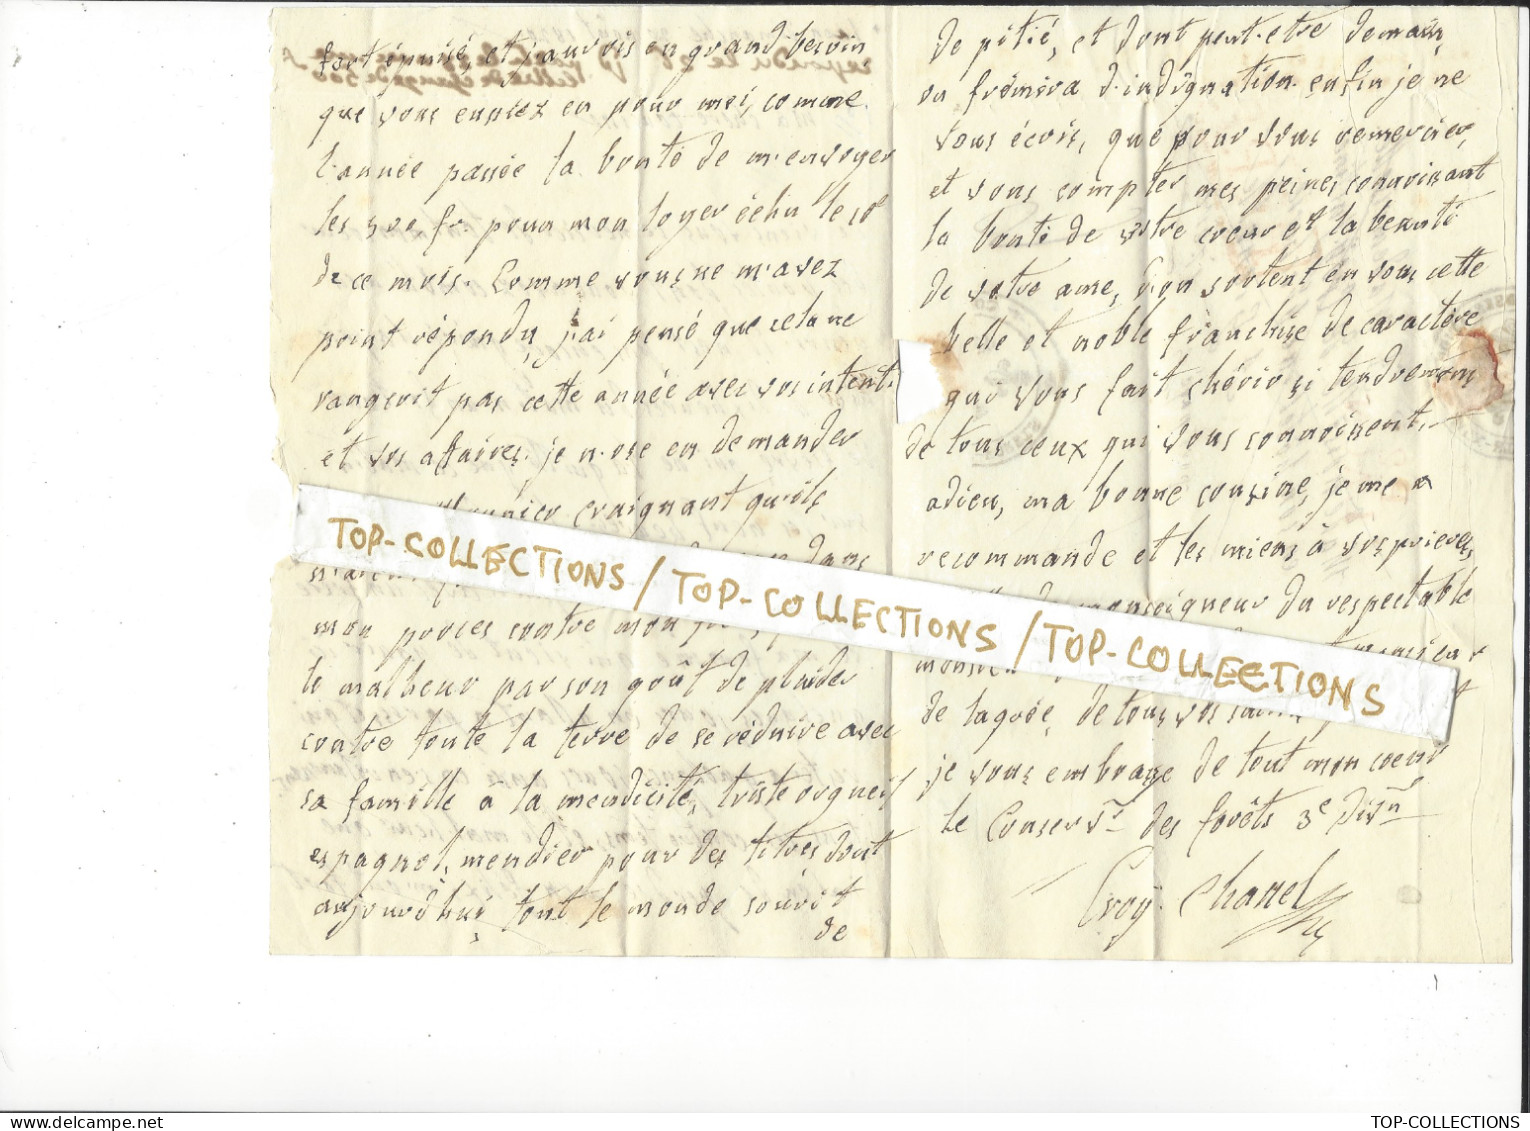 fort épuisé, et j'aurois en grand besoin
que vous eussiez eu pour moi, comme
l'année passée la bonté de m'envoyer
les 500 fr. pour mon loyer échu le 18
de ce mois. Comme vous ne m'avez
point répondu, j'ai pensé que cela ne
rangeoit pas cette année avec vos intent.
et vos affaires. je n'ose en demander
craignant qu'ils
dans
mon procès contre mon
le malheur par son goût de plaider
contre toute la terre de se réduire avec
sa famille à la mendicité, triste orgueil
espagnol, mendier pour des titres dont
aujourd'hui tout le monde sourit
de
de pitié, et dont peut-etre demain,
on frémira d'indignation. enfin je ne
vous écris, que pour vous remercier,
et vous compter mes peines connoissant
la bonté de votre coeur et la beauté
de votre ame, d'ou sortent en vous cette
belle et noble franchise de caractère
qui vous fait chérir si tendrement
de tous ceux qui vous connoissent.
adieu, ma bonne cousine, je me
recommande et les miens à vos prieres,
monseigneur du respectable
de tous vos
je vous embrasse de tout mon coeur
le Conservr. des forêts 3e Divn
Croÿ Chanel
TOP-COLLECTIONS / TOP-COLLECTIONS / TOP-COLLECTIONS
delcampe.net
TOP-COLLECTIONS